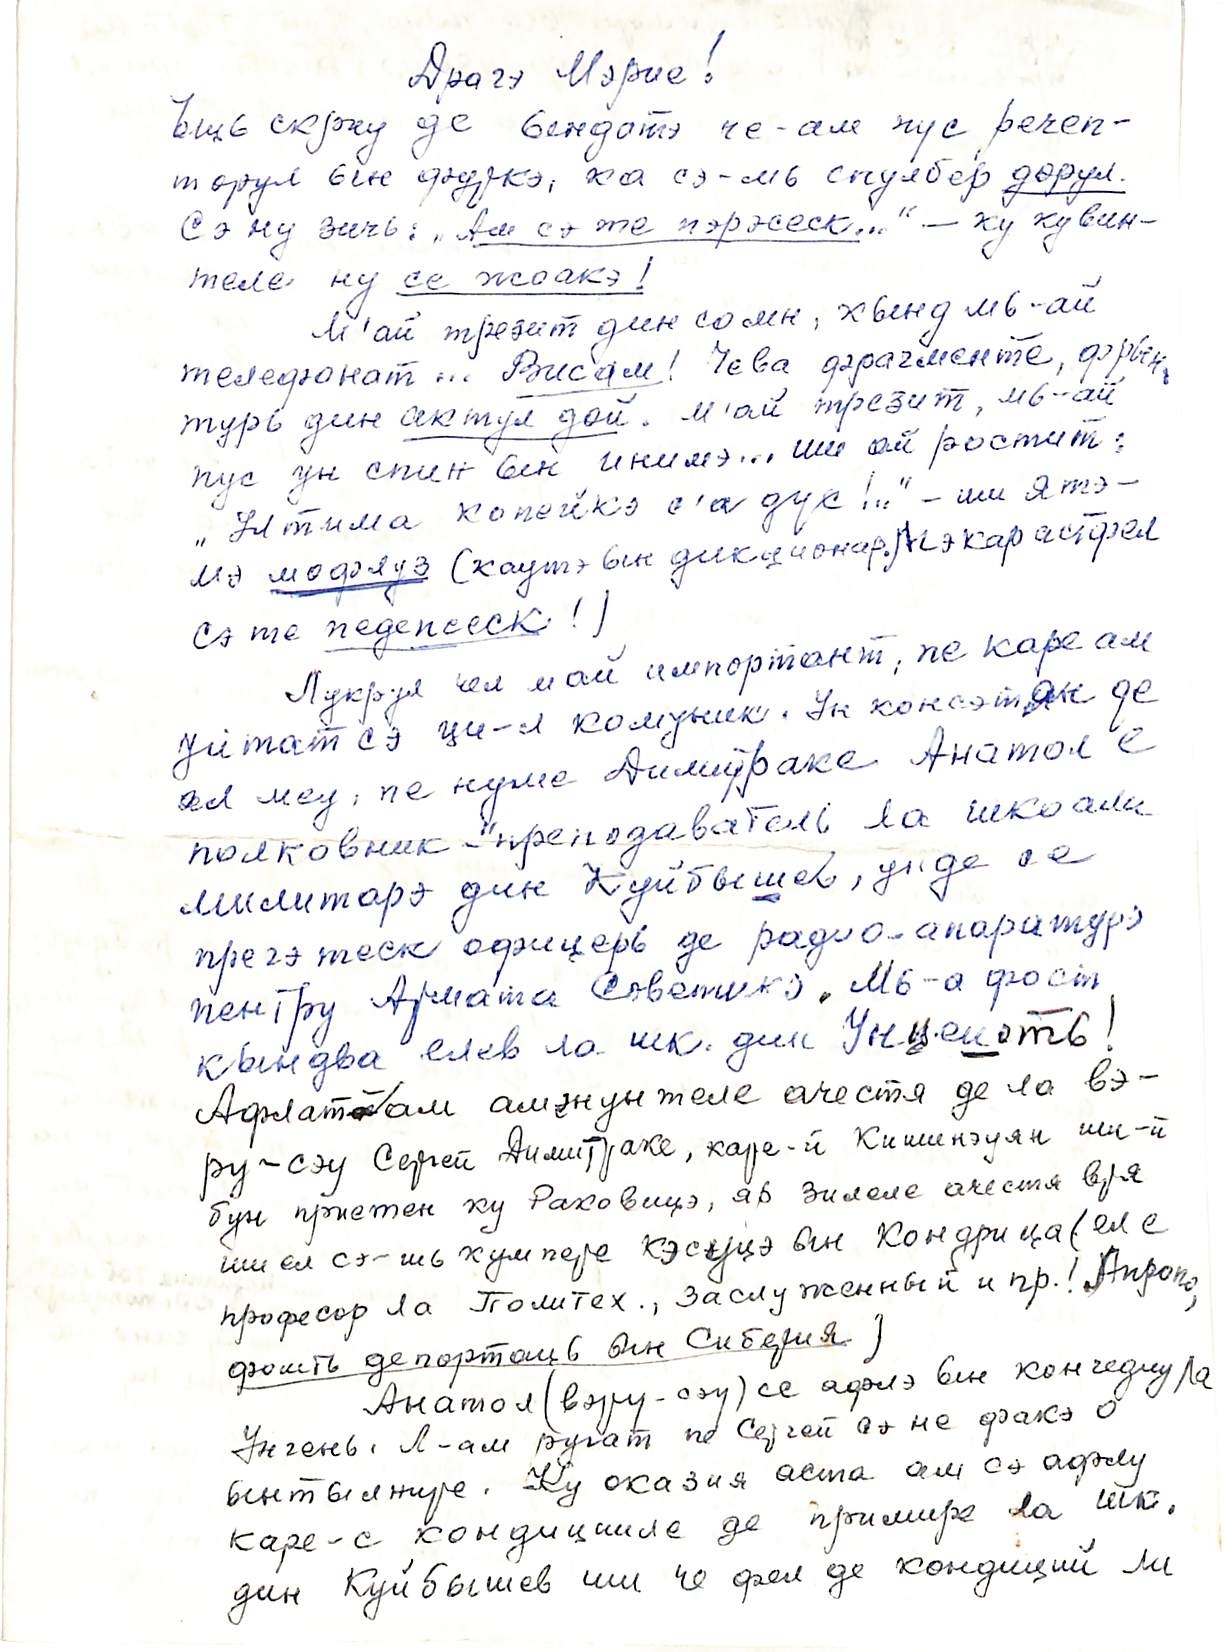 Драгэ Мэрие!
Ыць скриу де ындатэ че-ам пус речеп-
торул ын фуркэ, ка сэ-мь спулбер дорул.
Сэ ну зичь: „Ам сэ те пэрэсеск..." – ку кувин-
теле ну се жоакэ!
М'ай трезит дин сомн, кынд мь-ай
телефонат... Висам! Чева фрагменте, фрын-
турь дин актул дой. М'ай трезит, мь-ай
пус ун спин ын инимэ... ши ай ростит:
„Ултима копейкэ с'а дус!.." – ши я тэ-
мэ мофлуз (каутэ ын дикционар. Мэкар астфел
сэ те педепсеск!)
Лукрул чел май импортант, пе каре ам
уйтат сэ ци-л комуник. Ун консэтян де
ал меу, пе нуме Димитраке Анатол е
полковник – преподаватель ла шкоали
милитарэ дин Куйбышев, унде се
прегэтеск офицерь де радио-апаратурэ
пентру Армата Советикэ. Мь-а фост
кындва елев ла шк. дин Унцешть!
Афлат-ам амэнунтеле ачестя де ла вэ-
ру-сэу Сергей Димитраке, каре-й Кишинэуян ши-й
бун приетен ку Раковицэ, яр зилеле ачестя вря
ши ел сэ-шь кумпере кэсуцэ ын Кондрица (ел е
професор ла Политех., Заслуженный и пр.! Апропо,
фошть депортаць ын Сиберия)
Анатол (вэру-сэу) се афлэ ын кончедиу ла
Унгень. Л-ам ругат пе Сергей сэ не факэ о
ынтылнире. Ку оказия аста ам сэ афлу
каре-с кондицииле де примире ла шк.
дин Куйбышев ши че фел де кондиций ли